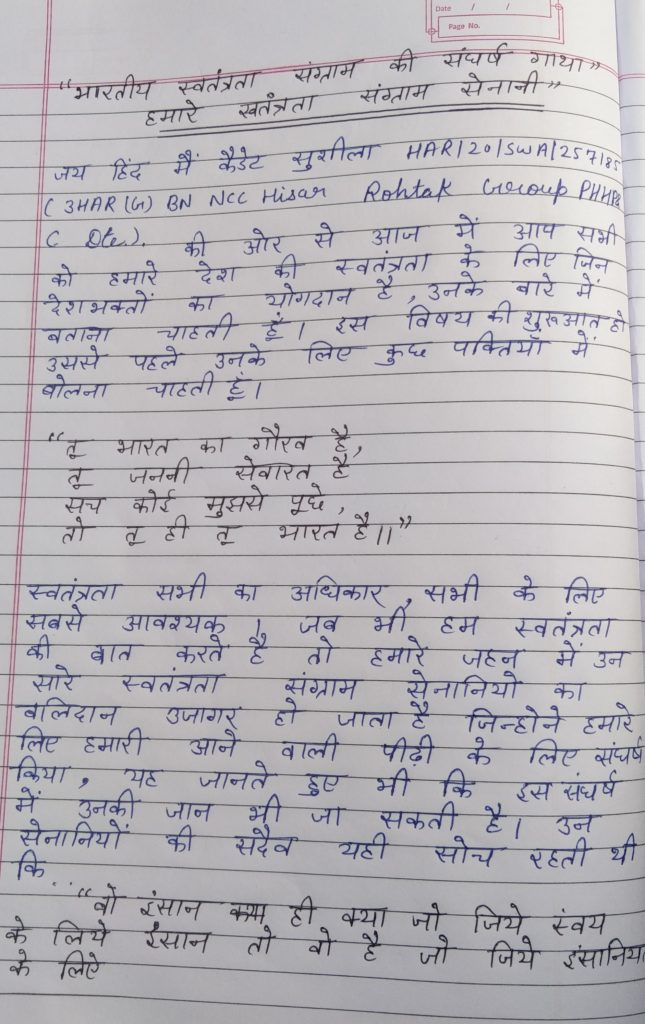 Date / /
Page No.
"भारतीय स्वतंत्रता संग्राम की संघर्ष गाथा"
हमारे स्वतंत्रता संग्राम सेनानी"
जय हिंद मैं कैडेट सुशीला HAR/20/SWA/257185
( 3HAR(G) BN NCC Hisar Rohtak Group PHHP&
C Dte.). की ओर से आज में आप सभी
को हमारे देश की स्वतंत्रता के लिए जिन
देशभक्तों का योगदान है, उनके बारे में
बताना चाहती हूँ। इस विषय की शुरूआत हो
उससे पहले उनके लिए कुछ पक्तियाँ में
बोलना चाहती हूं।
"तू भारत का गौरव है,
तू जननी सेवारत है
सच कोई मुझसे पूछे,
तो तू ही तू भारत है।।"
स्वतंत्रता सभी का अधिकार, सभी के लिए
सबसे आवश्यक। जब भी हम स्वतंत्रता
की बात करते है तो हमारे जहन में उन
सारे स्वतंत्रता संग्राम सेनानियो का
बलिदान उजागर हो जाता है जिन्होने हमारे
लिए हमारी आने वाली पीढ़ी के लिए संघर्ष
किया, यह जानते हुए भी कि इस संघर्ष
में उनकी जान भी जा सकती है। उन
सेनानियों की सदैव यही सोच रहती थी
कि...
"वो इंसान क्या ही क्या जो जिये स्वंय
के लिये इंसान तो वो है जो जिये इंसानिय
के लिऐ